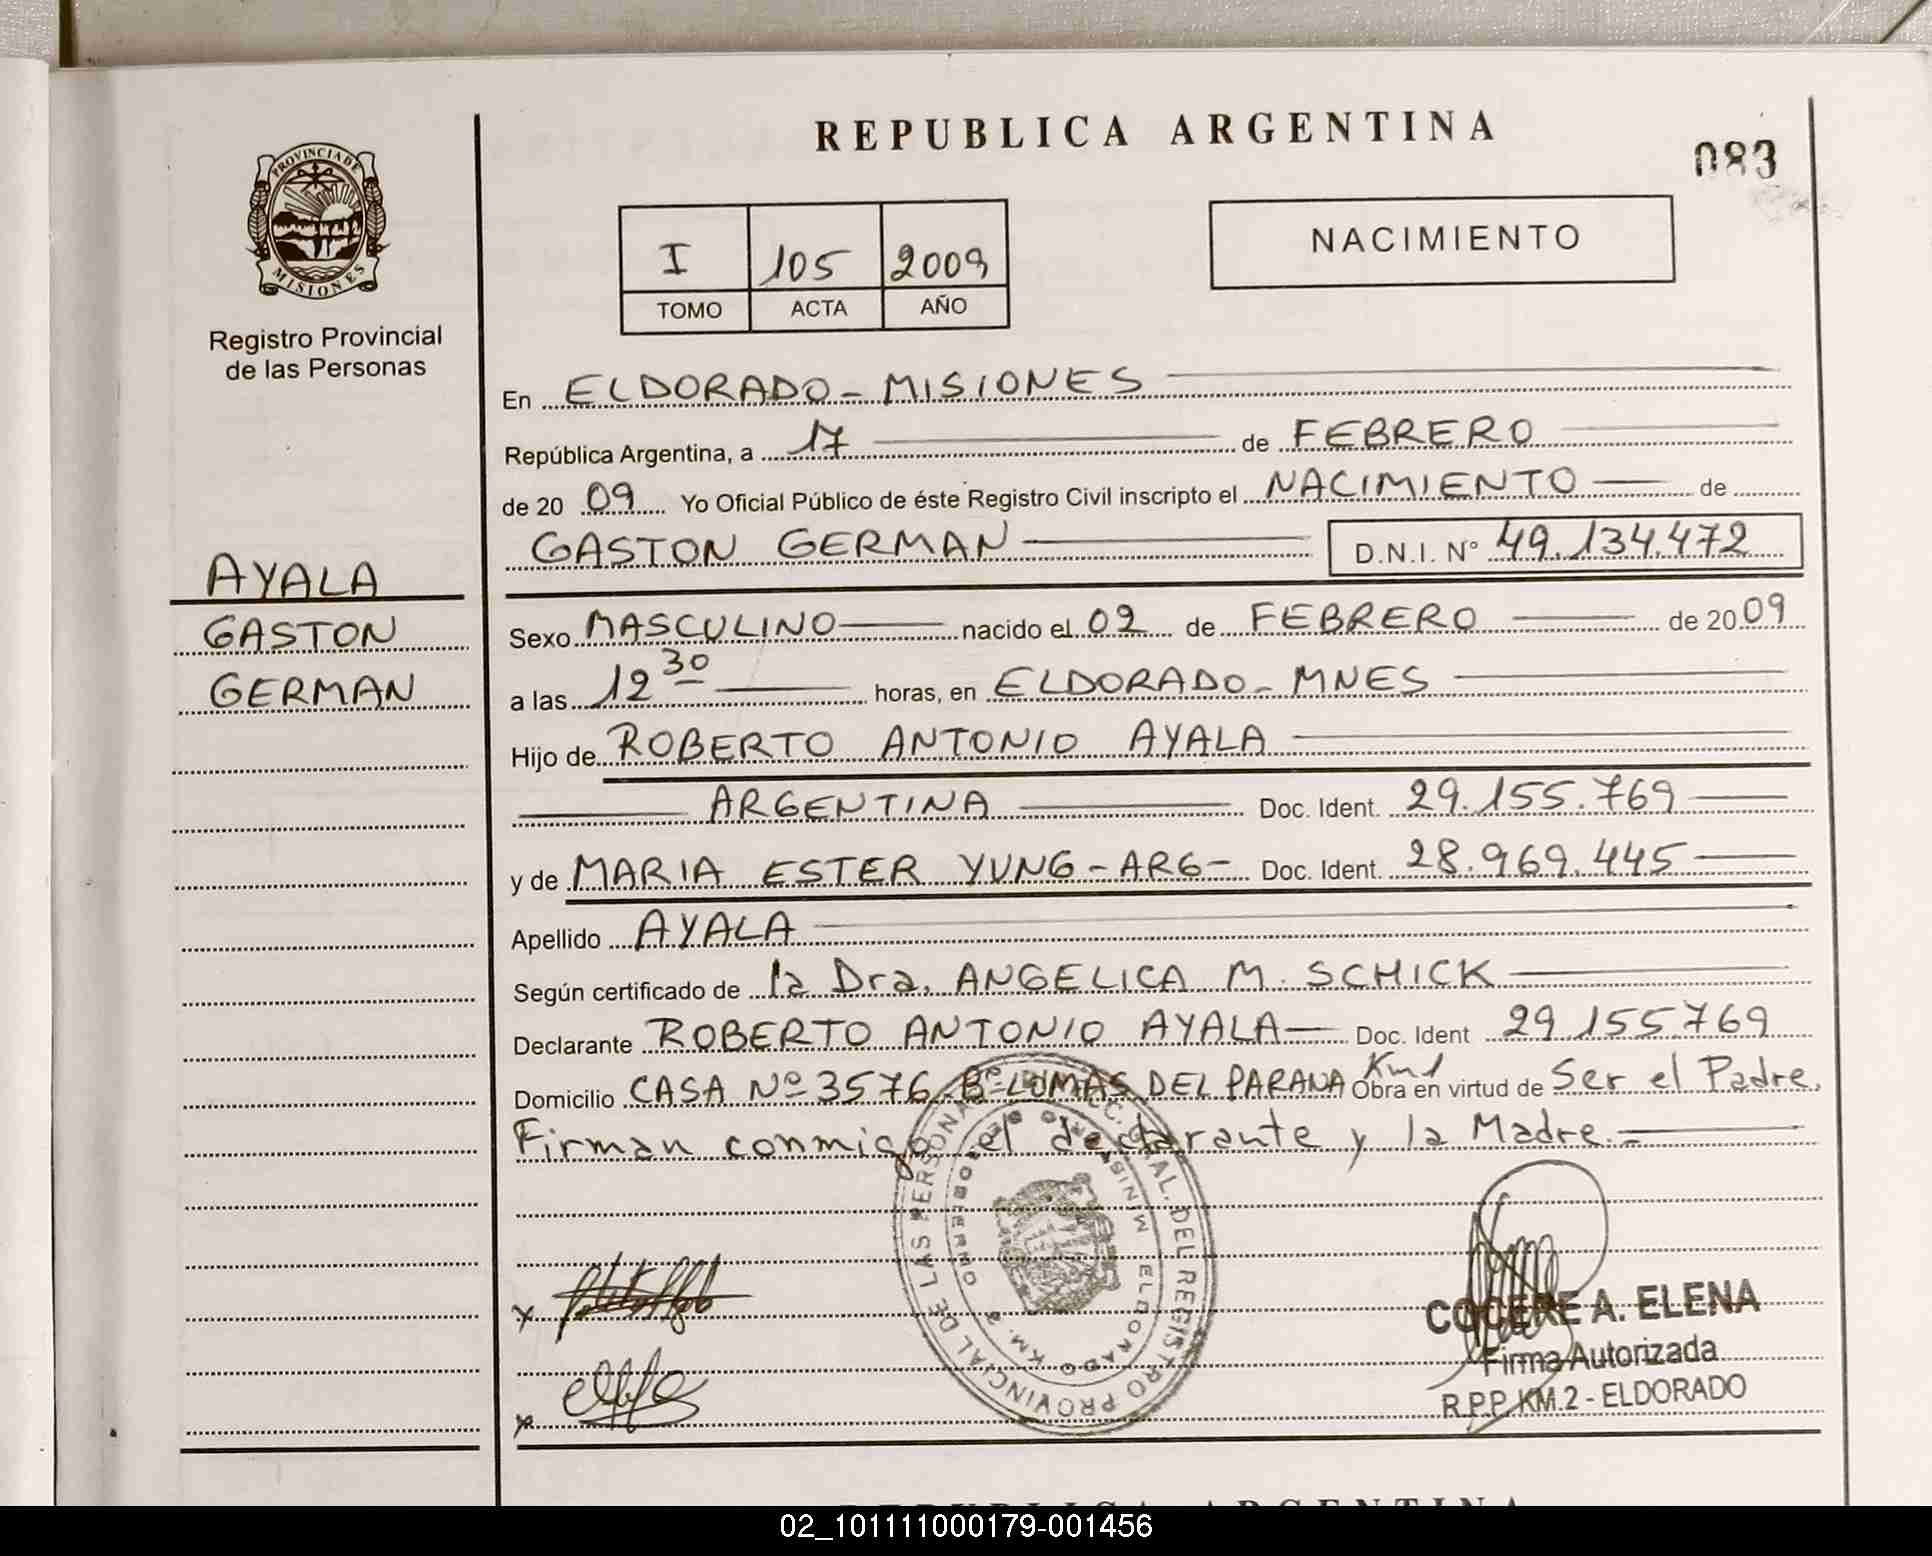 REPUBLICA ARGENTINA
083
PROVINCIA DE
MISIONES
Registro Provincial
de las Personas
I 105 2009
TOMO ACTA AÑO
NACIMIENTO
En ELDORADO - MISIONES
República Argentina, a 17 de FEBRERO
de 20 09 Yo Oficial Público de éste Registro Civil inscripto el NACIMIENTO de
GASTON GERMAN D.N.I. Nº 49.134.472
AYALA
GASTON
GERMAN
Sexo MASCULINO nacido el 02 de FEBRERO de 20 09
a las 12 30 horas, en ELDORADO - MNES
Hijo de ROBERTO ANTONIO AYALA
ARGENTINA Doc. Ident. 29.155.769
y de MARIA ESTER YUNG - ARG - Doc. Ident. 28.969.445
Apellido AYALA
Según certificado de la Dra. ANGELICA M. SCHICK
Declarante ROBERTO ANTONIO AYALA Doc. Ident 29.155.769
Domicilio CASA Nº 3576 Bº LOMAS DEL PARANA Km 1 Obra en virtud de Ser el Padre.
Firman conmigo el declarante y la Madre.-
GRAL. DEL REGISTRO PROVINCIAL DE LAS PERSONAS
ELDORADO KM. 2 GOBIERNO
COCERE A. ELENA
Firma Autorizada
R.P.P. KM.2 - ELDORADO
REPUBLICA ARGENTINA
02_101111000179-001456